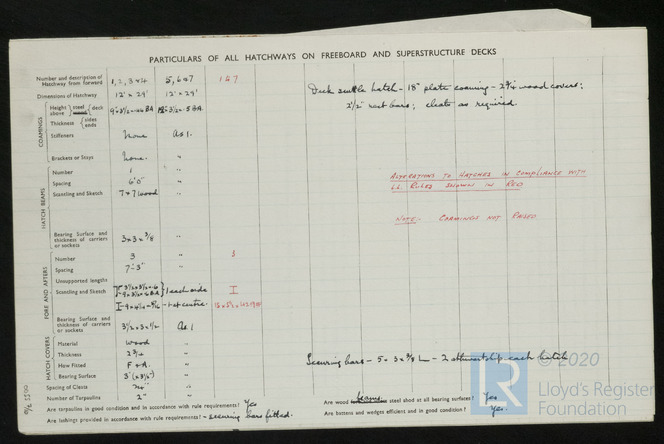 PARTICULARS OF ALL HATCHWAYS ON FREEBOARD AND SUPERSTRUCTURE DECKS
Number and description of Hatchway from forward 1, 2, 3 & 4 5, 6 & 7 1 & 7
Dimensions of Hatchway 12' × 29' 12' × 29'
COAMINGS
Height above steel deck
Thickness sides ends
Stiffeners None As 1.
Brackets or Stays None. "
HATCH BEAMS
Number 1 "
Spacing 6'0" "
Scantling and Sketch 7 × 7 wood "
Bearing Surface and thickness of carriers or sockets 3 × 3 × 3/8 "
FORE AND AFTERS
Number 3 " 3
Spacing 7'-3" "
Unsupported lengths
Scantling and Sketch 1 each side I
1 at centre.
Bearing Surface and thickness of carriers or sockets 3½ × 3 × ½ As 1
HATCH COVERS
Material Wood "
Thickness 2¾ "
How Fitted F & A. "
Bearing Surface 3" (× 3/8") "
Spacing of Cleats 24" "
Number of Tarpaulins 2" "
Are tarpaulins in good condition and in accordance with rule requirements? Yes
Are lashings provided in accordance with rule requirements? - securing bars fitted.
Deck scuttle hatch - 18" plate coaming - 2¾ wood covers;
2½" rest bars; cleats as required.
ALTERATIONS TO HATCHES IN COMPLIANCE WITH
LL RULES SHOWN IN RED
NOTE:- COAMINGS NOT RAISED
Securing bars - 5 × 3 × 3/8 L - 2 athwartship each hatch
Are wood beams steel shod at all bearing surfaces? Yes
Are battens and wedges efficient and in good condition? Yes.
LR
© 2020
Lloyd's Register
Foundation